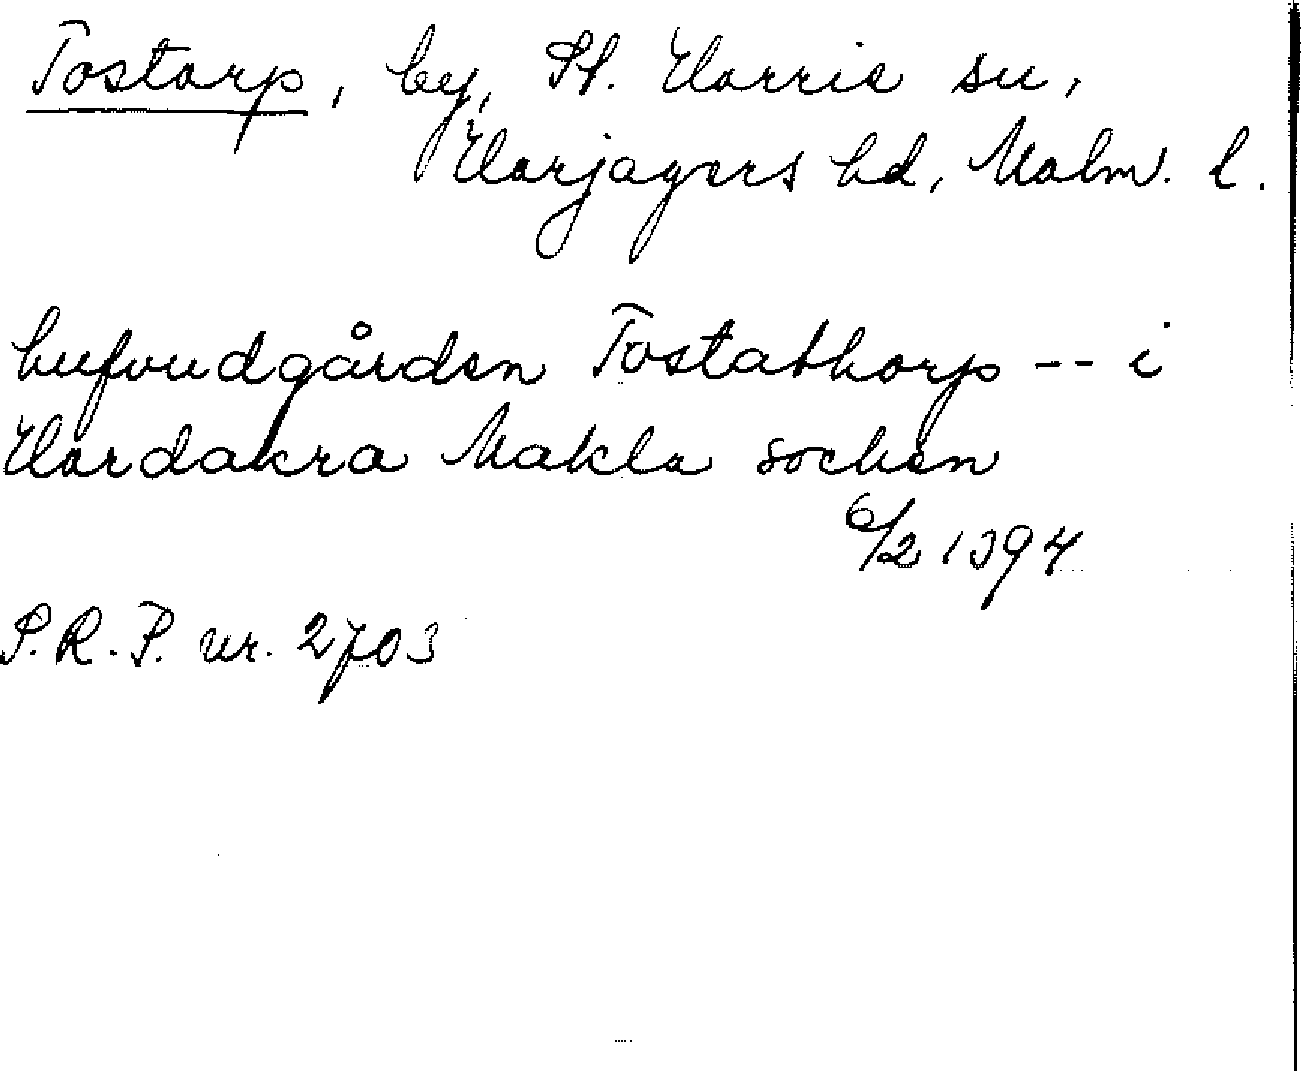 Tostarp, by, St. Harrie sn,
Harjagers hd, Malm. l.
hufvudgården Tostathorp -- i
Hardakra Makla socken
6/2 1394
S.R.P. nr. 2703